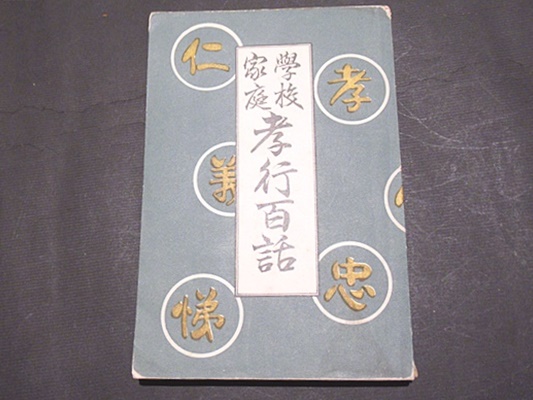 學校
家庭
孝行百話
孝
忠
仁
義
悌